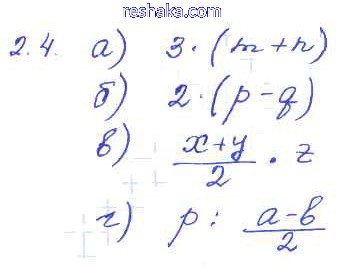 reshaka.com
2.4. а) 3·(m+n)
б) 2·(p-q)
в) (x+y)/2 · z
г) p : (a-b)/2